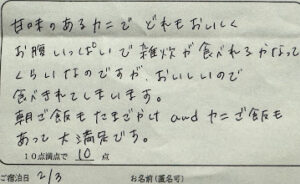 甘味のあるカニで どれもおいしく
お腹いっぱいで雑炊が食べれるかなって
くらいなのですが、おいしいので
食べきれてしまいます。
朝ご飯もたまごかけ and カニご飯も
あって大満足です。
10点満点で 10 点
ご宿泊日 2/3 お名前(匿名可)